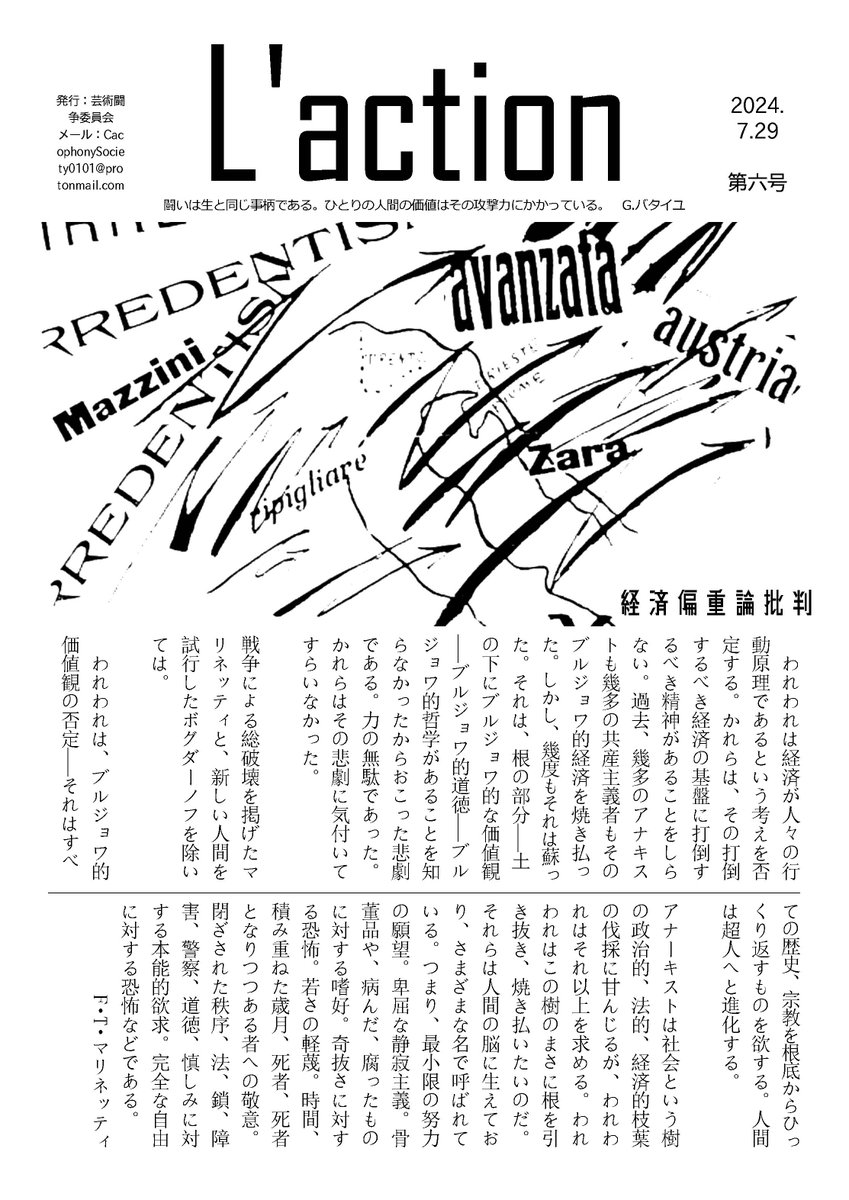 発行：芸術闘
争委員会
メール：Cac
ophonySocie
ty0101@pro
tonmail.com
L'action
2024.
7.29
第六号
闘いは生と同じ事柄である。ひとりの人間の価値はその攻撃力にかかっている。　G.バタイユ
RREDENTISM
avanzata
austria
Mazzini
RREDENTISM
TRIESTE
FIUME
Zara
ripigliare
経済偏重論批判
われわれは経済が人々の行
動原理であるという考えを否
定する。かれらは、その打倒
するべき経済の基盤に打倒す
るべき精神があることをしら
ない。過去、幾多のアナキス
トも幾多の共産主義者もその
ブルジョワ的経済を焼き払っ
た。しかし、幾度もそれは蘇っ
た。それは、根の部分――土
の下にブルジョワ的な価値観
――ブルジョワ的道徳――ブル
ジョワ的哲学があることを知
らなかったからおこった悲劇
である。力の無駄であった。
かれらはその悲劇に気付いて
すらいなかった。
戦争による総破壊を掲げたマ
リネッティと、新しい人間を
試行したボグダーノフを除い
ては。
われわれは、ブルジョワ的
価値観の否定――それはすべ
ての歴史、宗教を根底からひっ
くり返すものを欲する。人間
は超人へと進化する。
アナーキストは社会という樹
の政治的、法的、経済的枝葉
の伐採に甘んじるが、われわ
れはそれ以上を求める。われ
われはこの樹のまさに根を引
き抜き、焼き払いたいのだ。
それらは人間の脳に生えてお
り、さまざまな名で呼ばれて
いる。つまり、最小限の努力
の願望。卑屈な静寂主義。骨
董品や、病んだ、腐ったもの
に対する嗜好。奇抜さに対す
る恐怖。若さの軽蔑。時間、
積み重ねた歳月、死者、死者
となりつつある者への敬意。
閉ざされた秩序、法、鎖、障
害、警察、道徳、慎しみに対
する本能的欲求。完全な自由
に対する恐怖などである。
F・T・マリネッティ